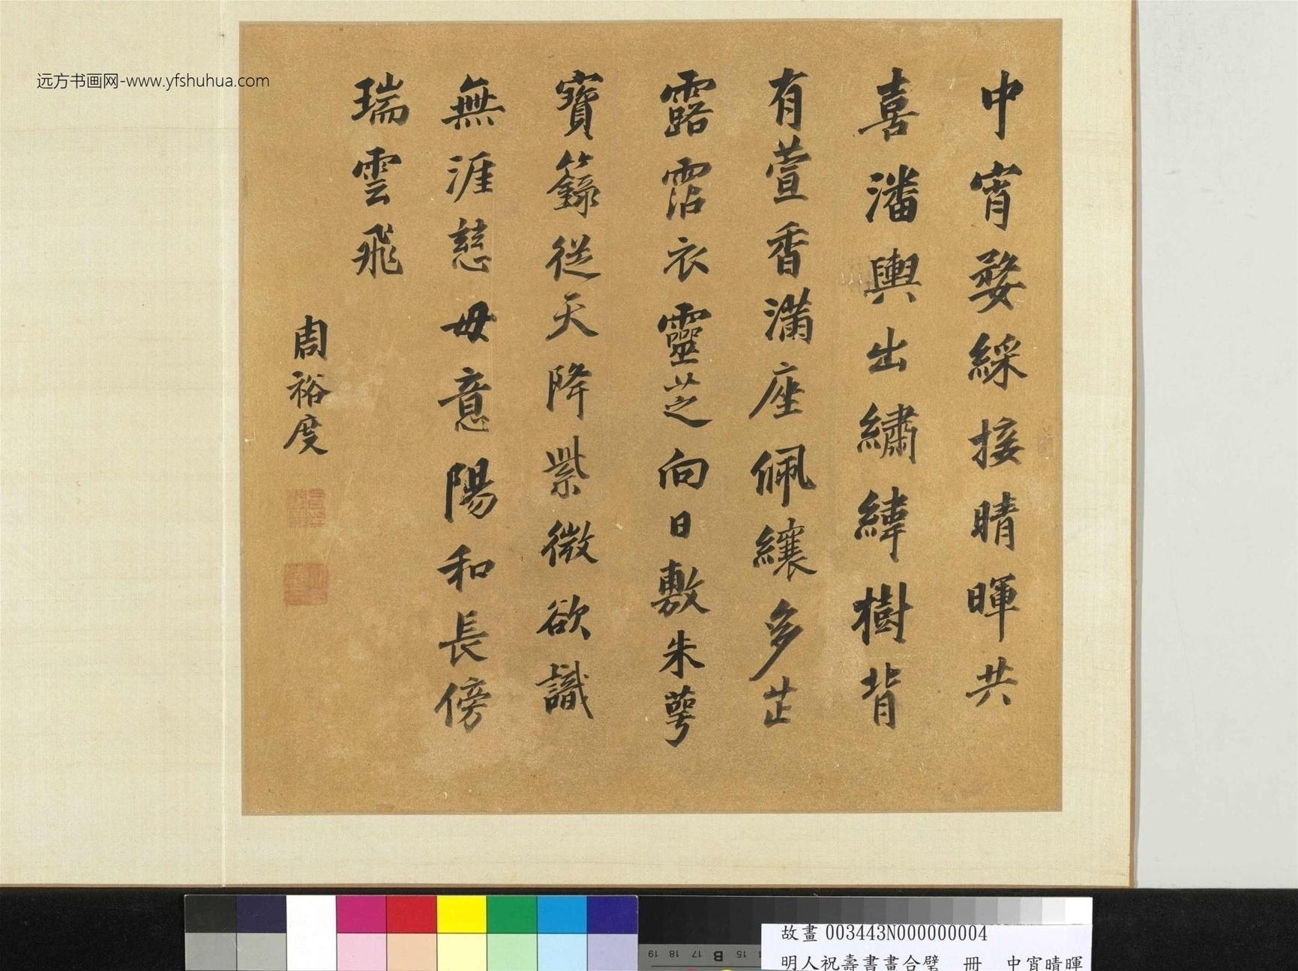 中宵婺綵接晴暉共
喜潘輿出繡緯樹背
有萱香滿座佩纕多芷
露霑衣靈芝向日敷朱萼
寶籙從天降紫微欲識
無涯慈毋意陽和長傍
瑞雲飛
周裕度
远方书画网-www.yfshuhua.com
故畫 003443N000000004
明人祝壽書畫合璧 冊 中宵晴暉
19 18 17 B 15